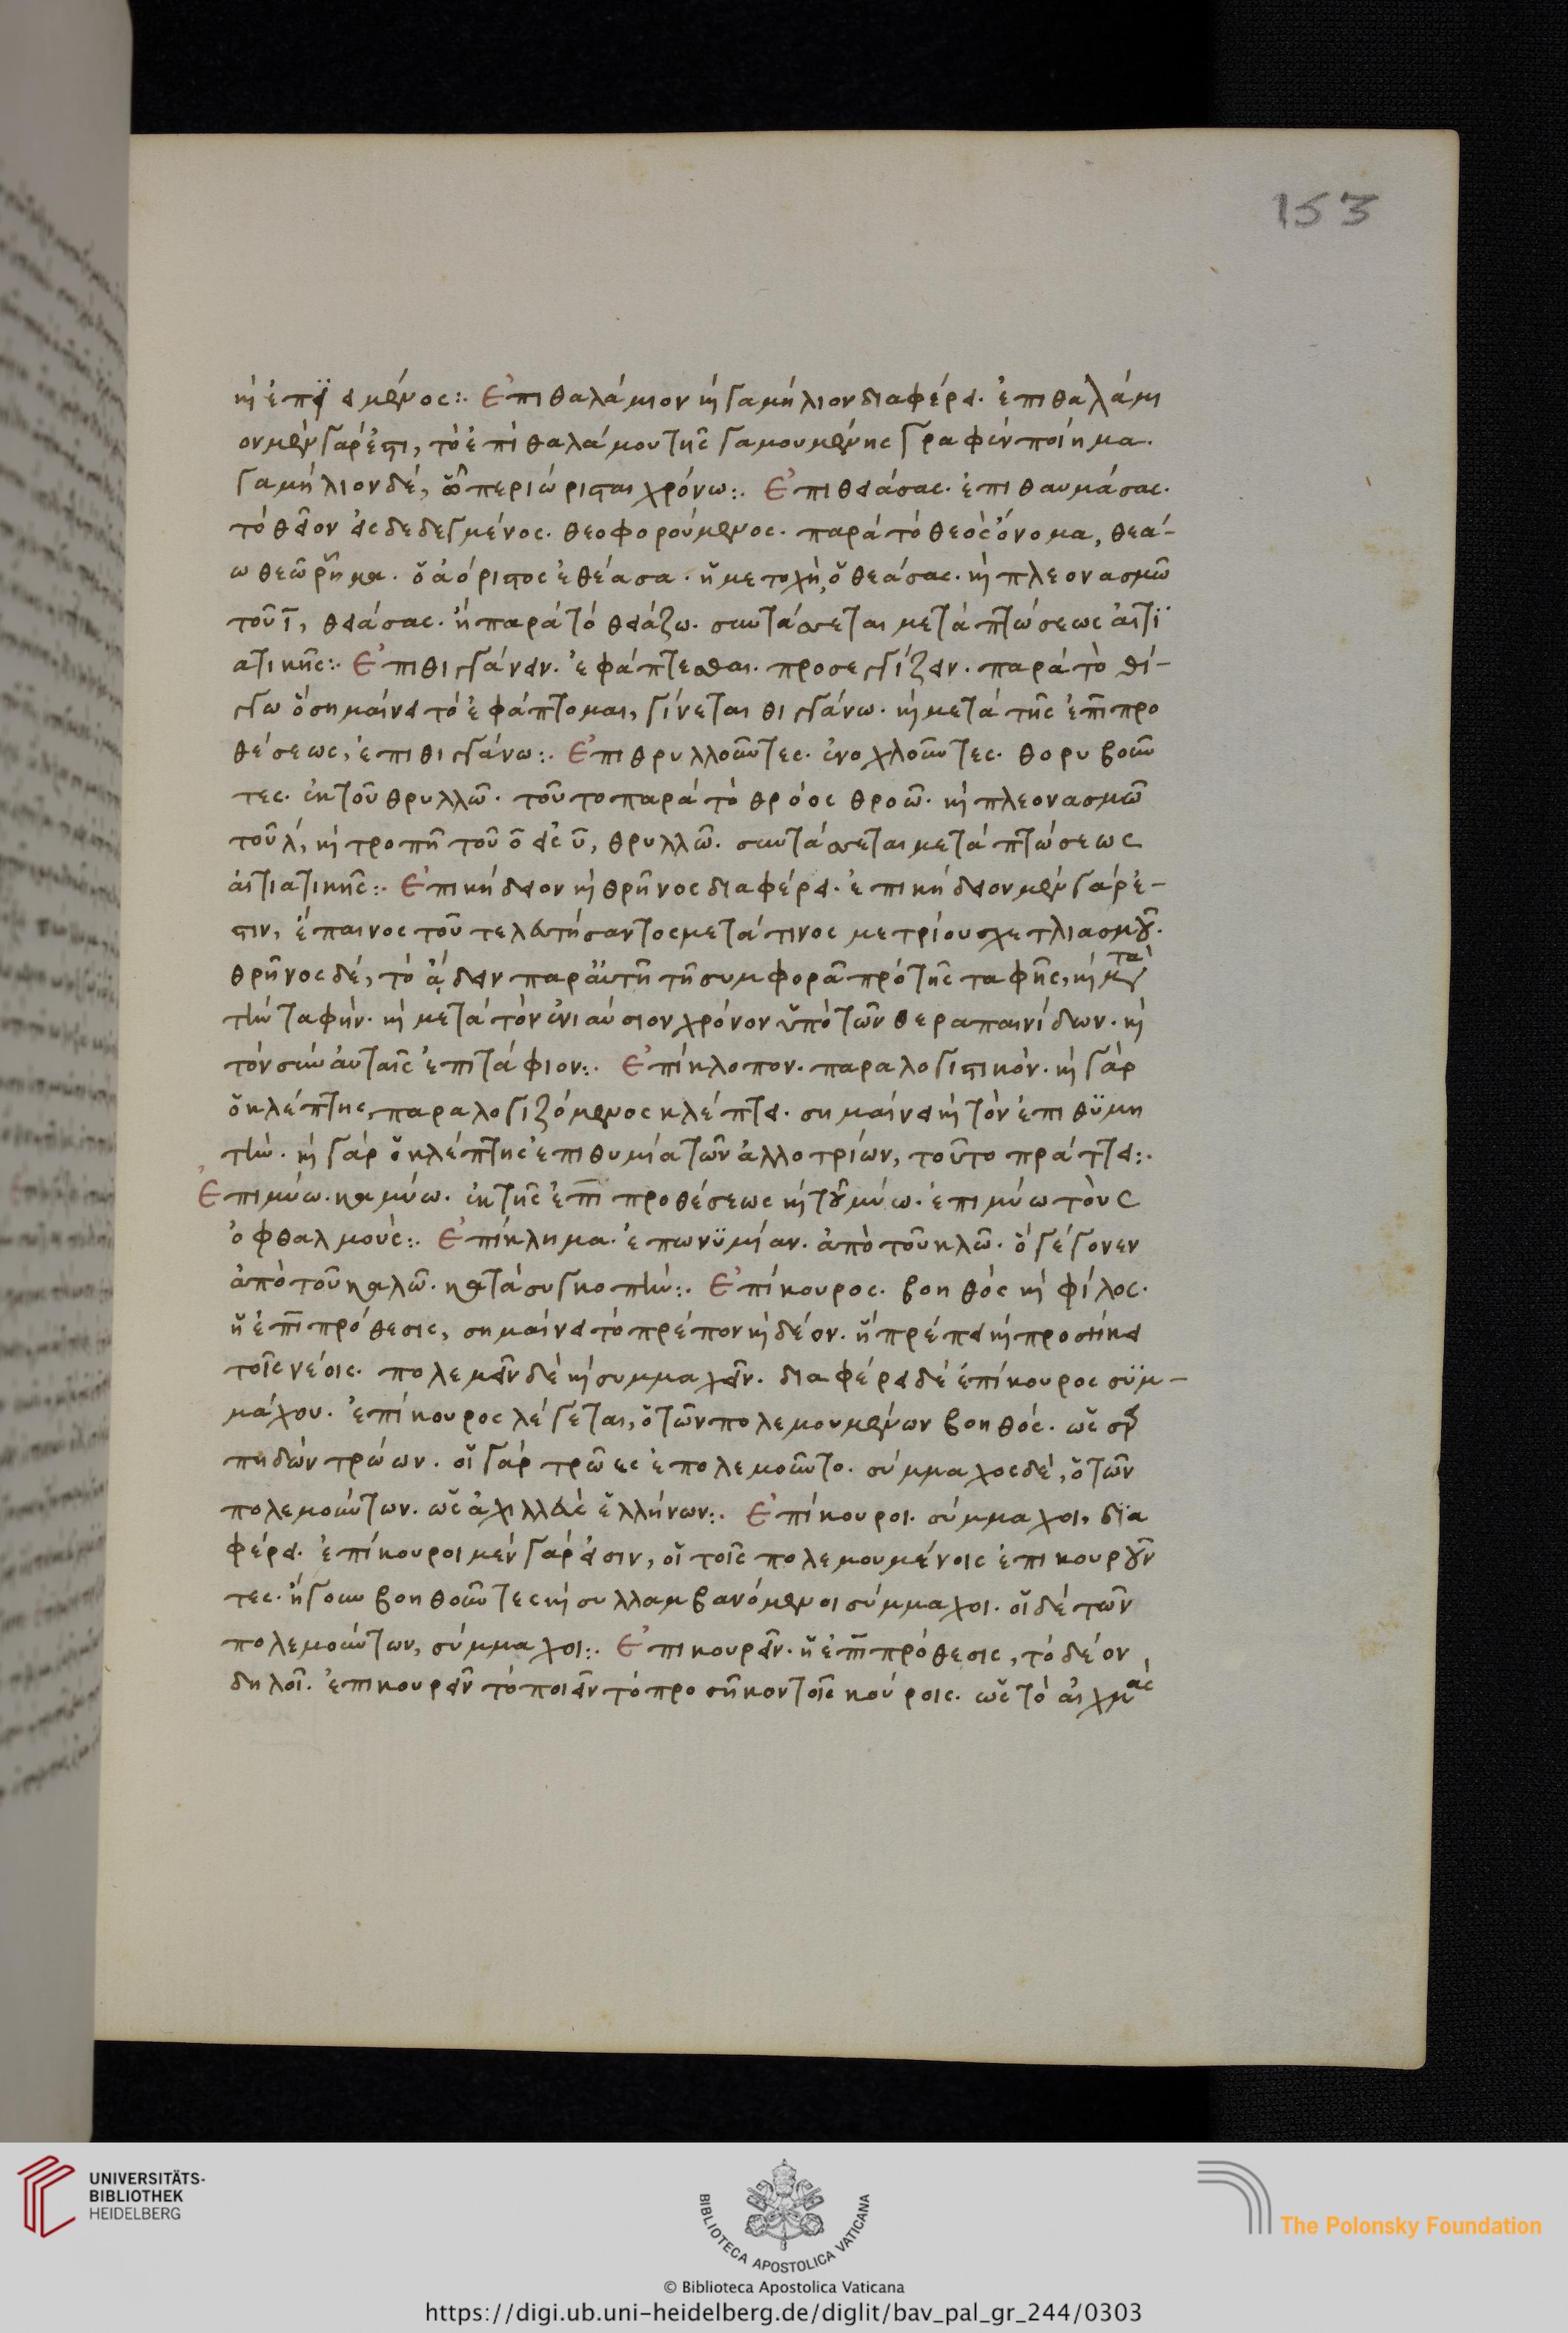 153
καὶ ἐπᾴδει μένος:. Ἐπιθαλάμιον καὶ γαμήλιον διαφέρει. ἐπιθαλάμι
ον μὲν γάρ ἐστι, τὸ ἐπὶ θαλάμου τῆς γαμουμένης γραφὲν ποίημα.
γαμήλιον δέ, περιώρισται χρόνω:. Ἐπιθειάσας. ἐπιθαυμάσας.
τὸ θεῖον εἰσδεδεγμένος. θεοφορούμενος. παρὰ τὸ θεὸς ὄνομα, θεά-
ω θεῶ ῥῆμα. ὁ ἀόριστος ἐθέασα. ἡ μετοχὴ, ὁ θεάσας. καὶ πλεονασμῶ
τοῦ ι, θειάσας. ἢ παρὰ τὸ θειάζω. συντάσσεται μετὰ πτώσεως αἰτι
ατικῆς:. Ἐπιθιγγάνειν. ἐφάπτεσθαι. προσεγγίζειν. παρὰ τὸ θί-
γγω ὃ σημαίνει τὸ ἐφάπτομαι, γίνεται θιγγάνω. καὶ μετὰ τῆς ἐπὶ προ
θέσεως, ἐπιθιγγάνω:. Ἐπιθρυλλοῦντες. ἐνοχλοῦντες. θορυβοῦν
τες. ἐκ τοῦ θρυλλῶ. τοῦτο παρὰ τὸ θρόος θροῶ. καὶ πλεονασμῶ
τοῦ λ, καὶ τροπῆ τοῦ ο εἰς υ, θρυλλῶ. συντάσσεται μετὰ πτώσεως
αἰτιατικῆς:. Ἐπικήδειον καὶ θρῆνος διαφέρει. ἐπικήδειον μὲν γάρ ἐ-
στιν, ἔπαινος τοῦ τελευτήσαντος μετά τινος μετρίου σχετλιασμοῦ.
θρῆνος δέ, τὸ ᾄδειν παρ' αὐτῆ τῆ συμφορᾶ πρὸ τῆς ταφῆς, καὶ μετὰ
τὴν ταφήν. καὶ μετὰ τὸν ἐνιαύσιον χρόνον ὑπὸ τῶν θεραπαινίδων. καὶ
τὸν σὺν αὐταῖς ἐπιτάφιον:. Ἐπίκλοπον. παραλογιστικόν. καὶ γὰρ
ὁ κλέπτης, παραλογιζόμενος κλέπτει. σημαίνει καὶ τὸν ἐπιθυμη
τήν. καὶ γὰρ ὁ κλέπτης ἐπιθυμία τῶν ἀλλοτρίων, τοῦτο πράττει:.
Ἐπιμύω. καμύω. ἐκ τῆς ἐπὶ προθέσεως καὶ τοῦ μύω. ἐπιμύω τοὺς
ὀφθαλμούς:. Ἐπίκλημα. ἐπωνυμίαν. ἀπὸ τοῦ κλῶ. ὃ γέγονεν
ἀπὸ τοῦ καλῶ. κατὰ συγκοπήν:. Ἐπίκουρος. βοηθὸς καὶ φίλος.
ἡ ἐπὶ πρόθεσις, σημαίνει τὸ πρέπον καὶ δέον. ἢ πρέπει καὶ προσήκει
τοῖς νέοις. πολεμεῖν δὲ καὶ συμμαχεῖν. διαφέρει δὲ ἐπίκουρος συμ-
μάχου. ἐπίκουρος λέγεται, ὁ τῶν πολεμουμένων βοηθός. ὡς σαρ
πηδὼν τρώων. οἱ γὰρ τρῶες ἐπολεμοῦντο. σύμμαχος δέ, ὁ τῶν
πολεμούντων. ὡς ἀχιλλεὺς ἑλλήνων:. Ἐπίκουροι. σύμμαχοι, δια
φέρει. ἐπίκουροι μὲν γάρ εἰσιν, οἱ τοῖς πολεμουμένοις ἐπικουροῦν
τες. ἤγουν βοηθοῦντες καὶ συλλαμβανόμενοι σύμμαχοι. οἱ δὲ τῶν
πολεμούντων, σύμμαχοι:. Ἐπικουρεῖν. ἡ ἐπὶ πρόθεσις, τὸ δέον
δηλοῖ. ἐπικουρεῖν τὸ ποιεῖν τὸ προσῆκον τοῖς κούροις. ὡς τὸ αἰχμὰς
UNIVERSITÄTS-
BIBLIOTHEK
HEIDELBERG
BIBLIOTECA APOSTOLICA VATICANA
The Polonsky Foundation
© Biblioteca Apostolica Vaticana
https://digi.ub.uni-heidelberg.de/diglit/bav_pal_gr_244/0303